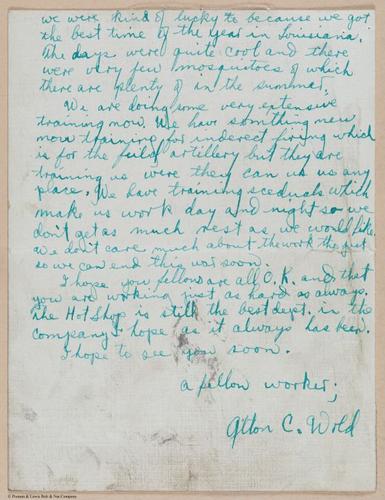 we were kind of lucky to because we got
the best time of the year in Louisiana.
The days were quite cool and there
were very few mosquitoes of which
there are plenty of in the summer.
We are doing some very extensive
training now. We have somthing new
now training for inderect firing which
is for the artillery but they are
training us were they can us us any
place. We have training scedicals which
make us work day and night so we
don't get as much rest as we would like.
We don't care much about the work tho just
so we can end this war soon.
I hope you fellows are all O.K. and that
you are working just as hard as always.
The Hot Shop is still the best dept. in the
company I hope as it always has been.
I hope to see you soon.
a fellow worker;
Atton C. Wold
© Pioneer & Lewis Bolt & Nut Company